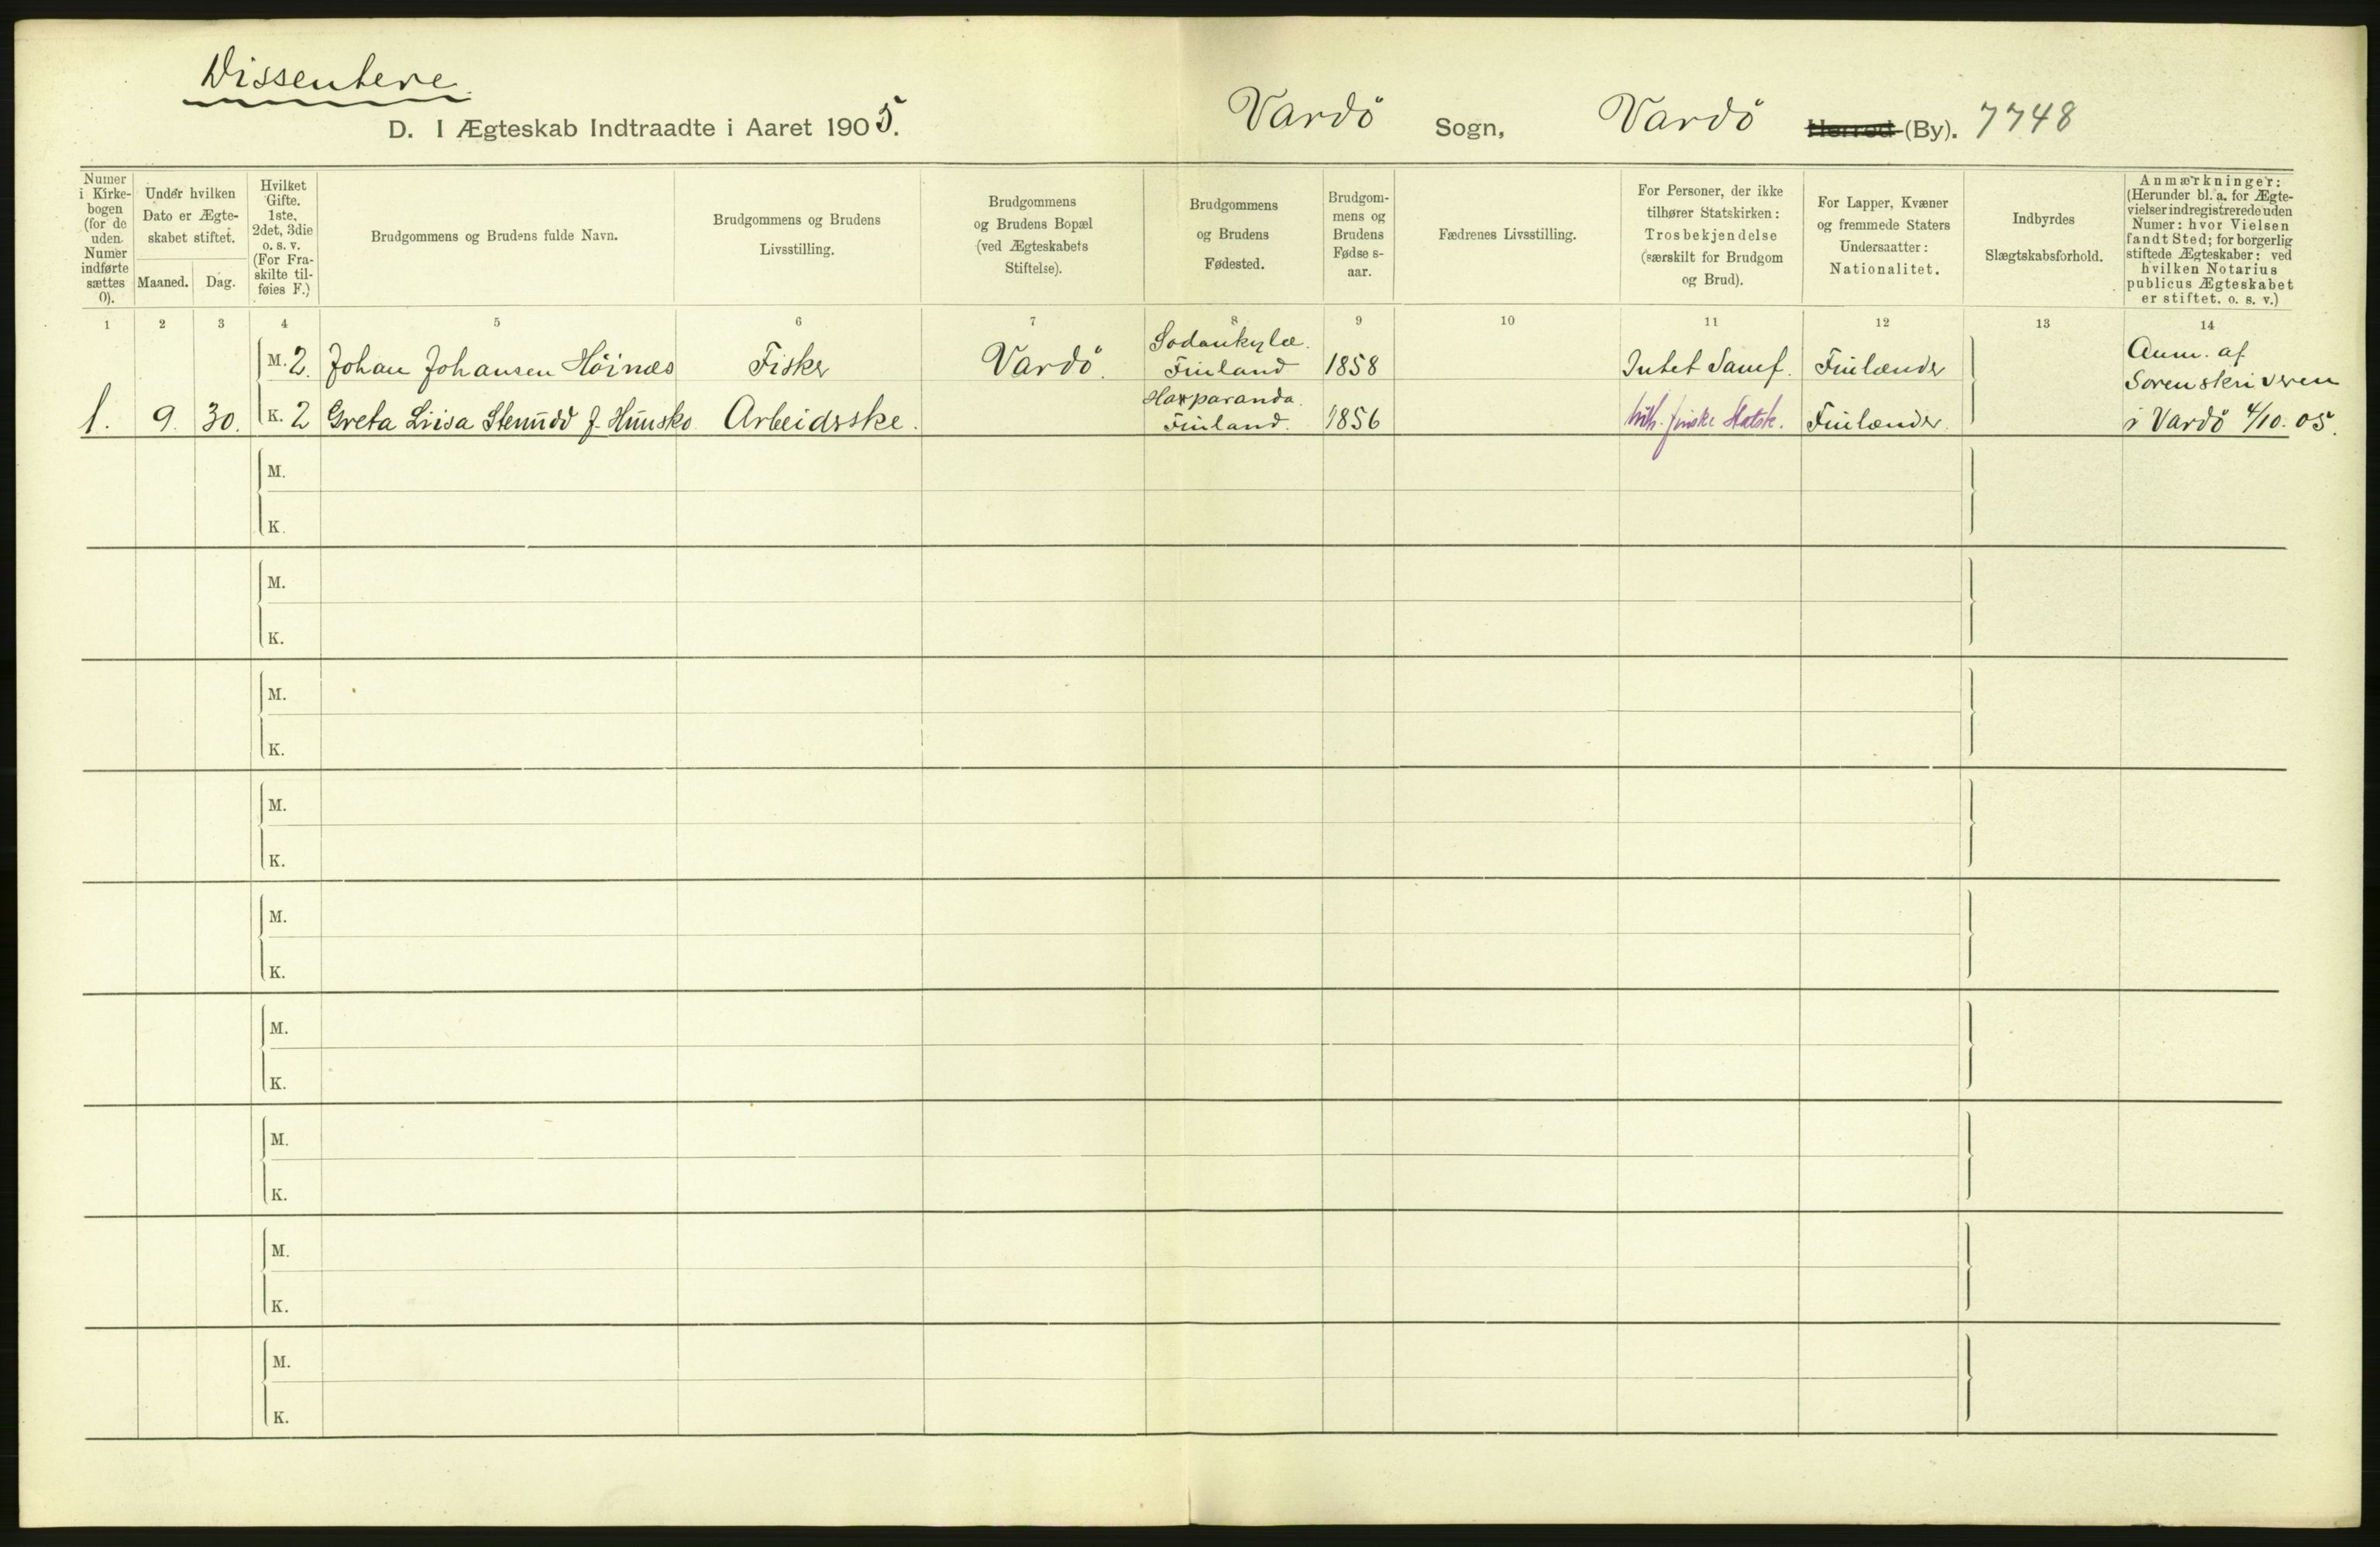 Dissentere.
D. I Ægteskab Indtraadte i Aaret 1905.
Vardö Sogn, Vardö Herred (By). 7748
Numer
i Kirke-
bogen
(for de
uden
Numer
indførte
sættes
0).
Under hvilken
Dato er Ægte-
skabet stiftet.
Maaned. Dag.
Hvilket
Gifte.
1ste,
2det, 3die
o. s. v.
(For Fra-
skilte til-
føies F.)
Brudgommens og Brudens fulde Navn.
Brudgommens og Brudens
Livsstilling.
Brudgommens
og Brudens Bopæl
(ved Ægteskabets
Stiftelse).
Brudgommens
og Brudens
Fødested.
Brudgom-
mens og
Brudens
Fødse s-
aar.
Fædrenes Livsstilling.
For Personer, der ikke
tilhører Statskirken:
Trosbekjendelse
(særskilt for Brudgom
og Brud).
For Lapper, Kvæner
og fremmede Staters
Undersaatter:
Nationalitet.
Indbyrdes
Slægtskabsforhold.
Anmærkninger:
(Herunder bl. a. for Ægte-
vielser indregistrerede uden
Numer: hvor Vielsen
fandt Sted; for borgerlig
stiftede Ægteskaber: ved
hvilken Notarius
publicus Ægteskabet
er stiftet. o. s. v.)
1 2 3 4 5 6 7 8 9 10 11 12 13 14
M. 2. Johan Johansen Höinæs Fisker Vardö. Sodankylæ. Finland 1858 Intet Samf. Finlænder
1. 9. 30. K. 2 Greta Liisa f. Arbeidsske. Haparanda. Finland. 1856 finske Statsk. Finlænder.
Anm. af
Sorenskriveren
i Vardö 4/10. 05.
M.
K.
M.
K.
M.
K.
M.
K.
M.
K.
M.
K.
M.
K.
M.
K.
M.
K.